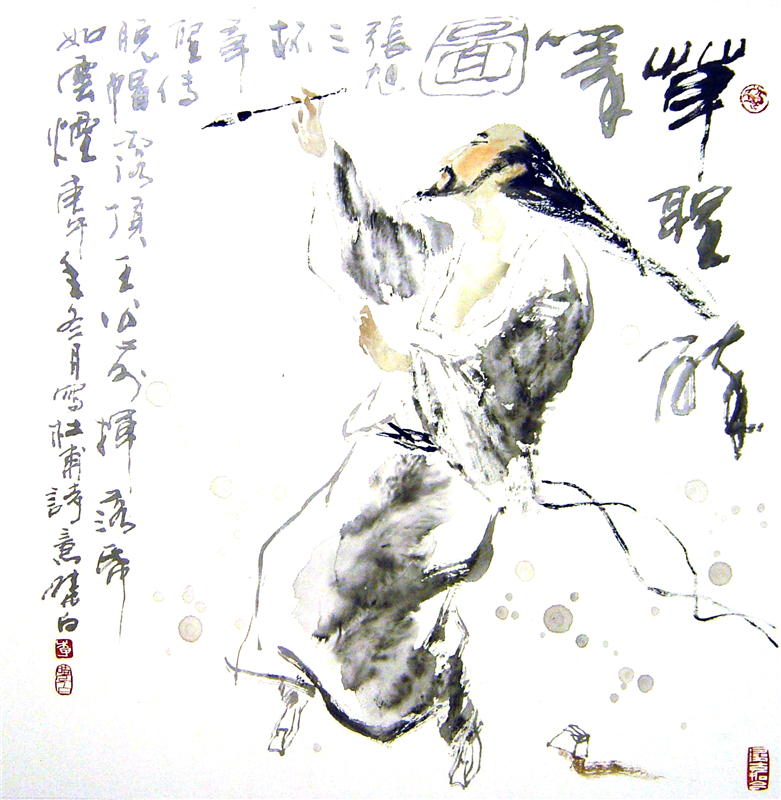 草聖醉
筆
圖
張旭
三
杯
草
聖傳
脫帽露頂王公前揮落帋
如雲煙庚午年冬月寫杜甫詩意曉白